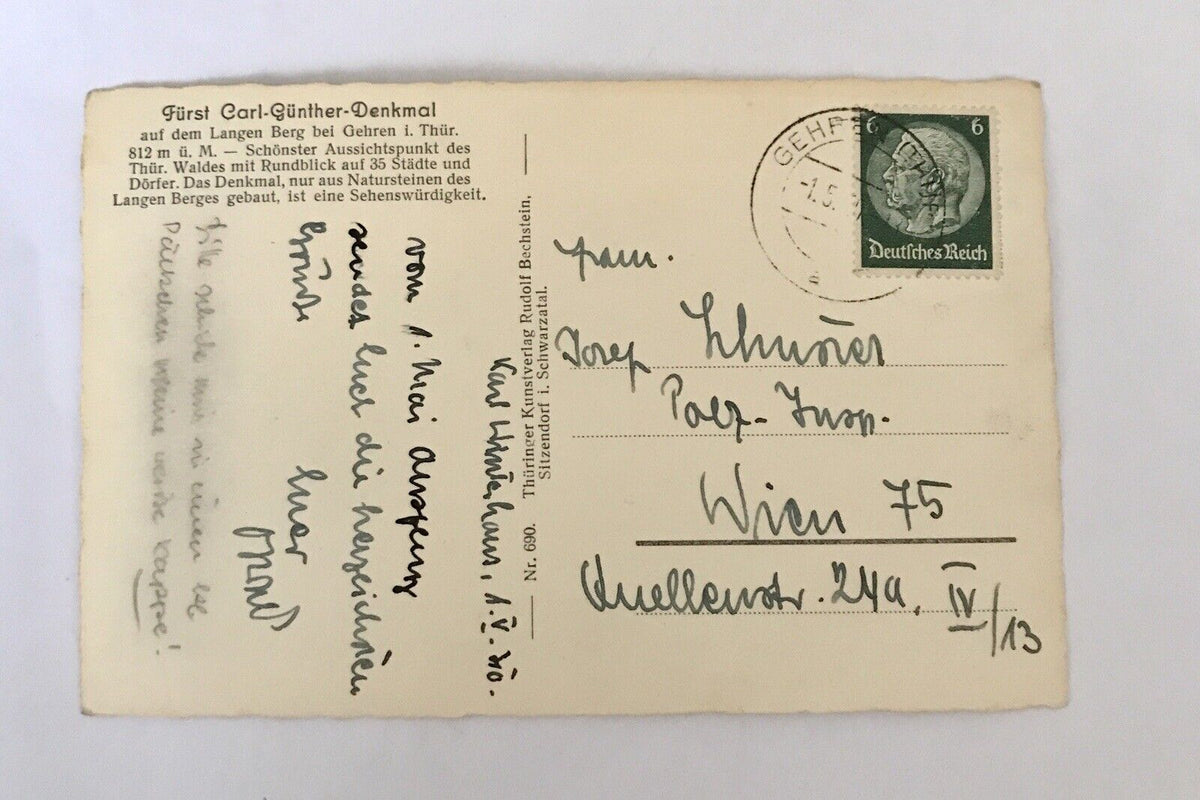 Fürst Carl-Günther-Denkmal
auf dem Langen Berg bei Gehren i. Thür.
812 m ü. M. — Schönster Aussichtspunkt des
Thür. Waldes mit Rundblick auf 35 Städte und
Dörfer. Das Denkmal, nur aus Natursteinen des
Langen Berges gebaut, ist eine Sehenswürdigkeit.
1. V. 40.
vom 1. Mai
sendet Euch die herzlichsten
Grüße
Euer
Bitte
meine Kappe!
Nr. 690. Thüringer Kunstverlag Rudolf Bechstein,
Sitzendorf i. Schwarzatal.
GEHREN (THÜR)
-1.5.
a
6 6
Deutsches Reich
Fam.
Josef
Polz-Insp.
Wien 75
Quellenstr. 24a, IV/13